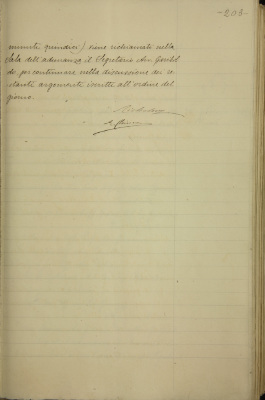 -203-
minuti quindici) viene richiamato nella
Sala dell'adunanza il Segretario Avv. Gentil
de per continuare nella discussione dei re
stanti argomenti iscritti all'ordine del
giorno.